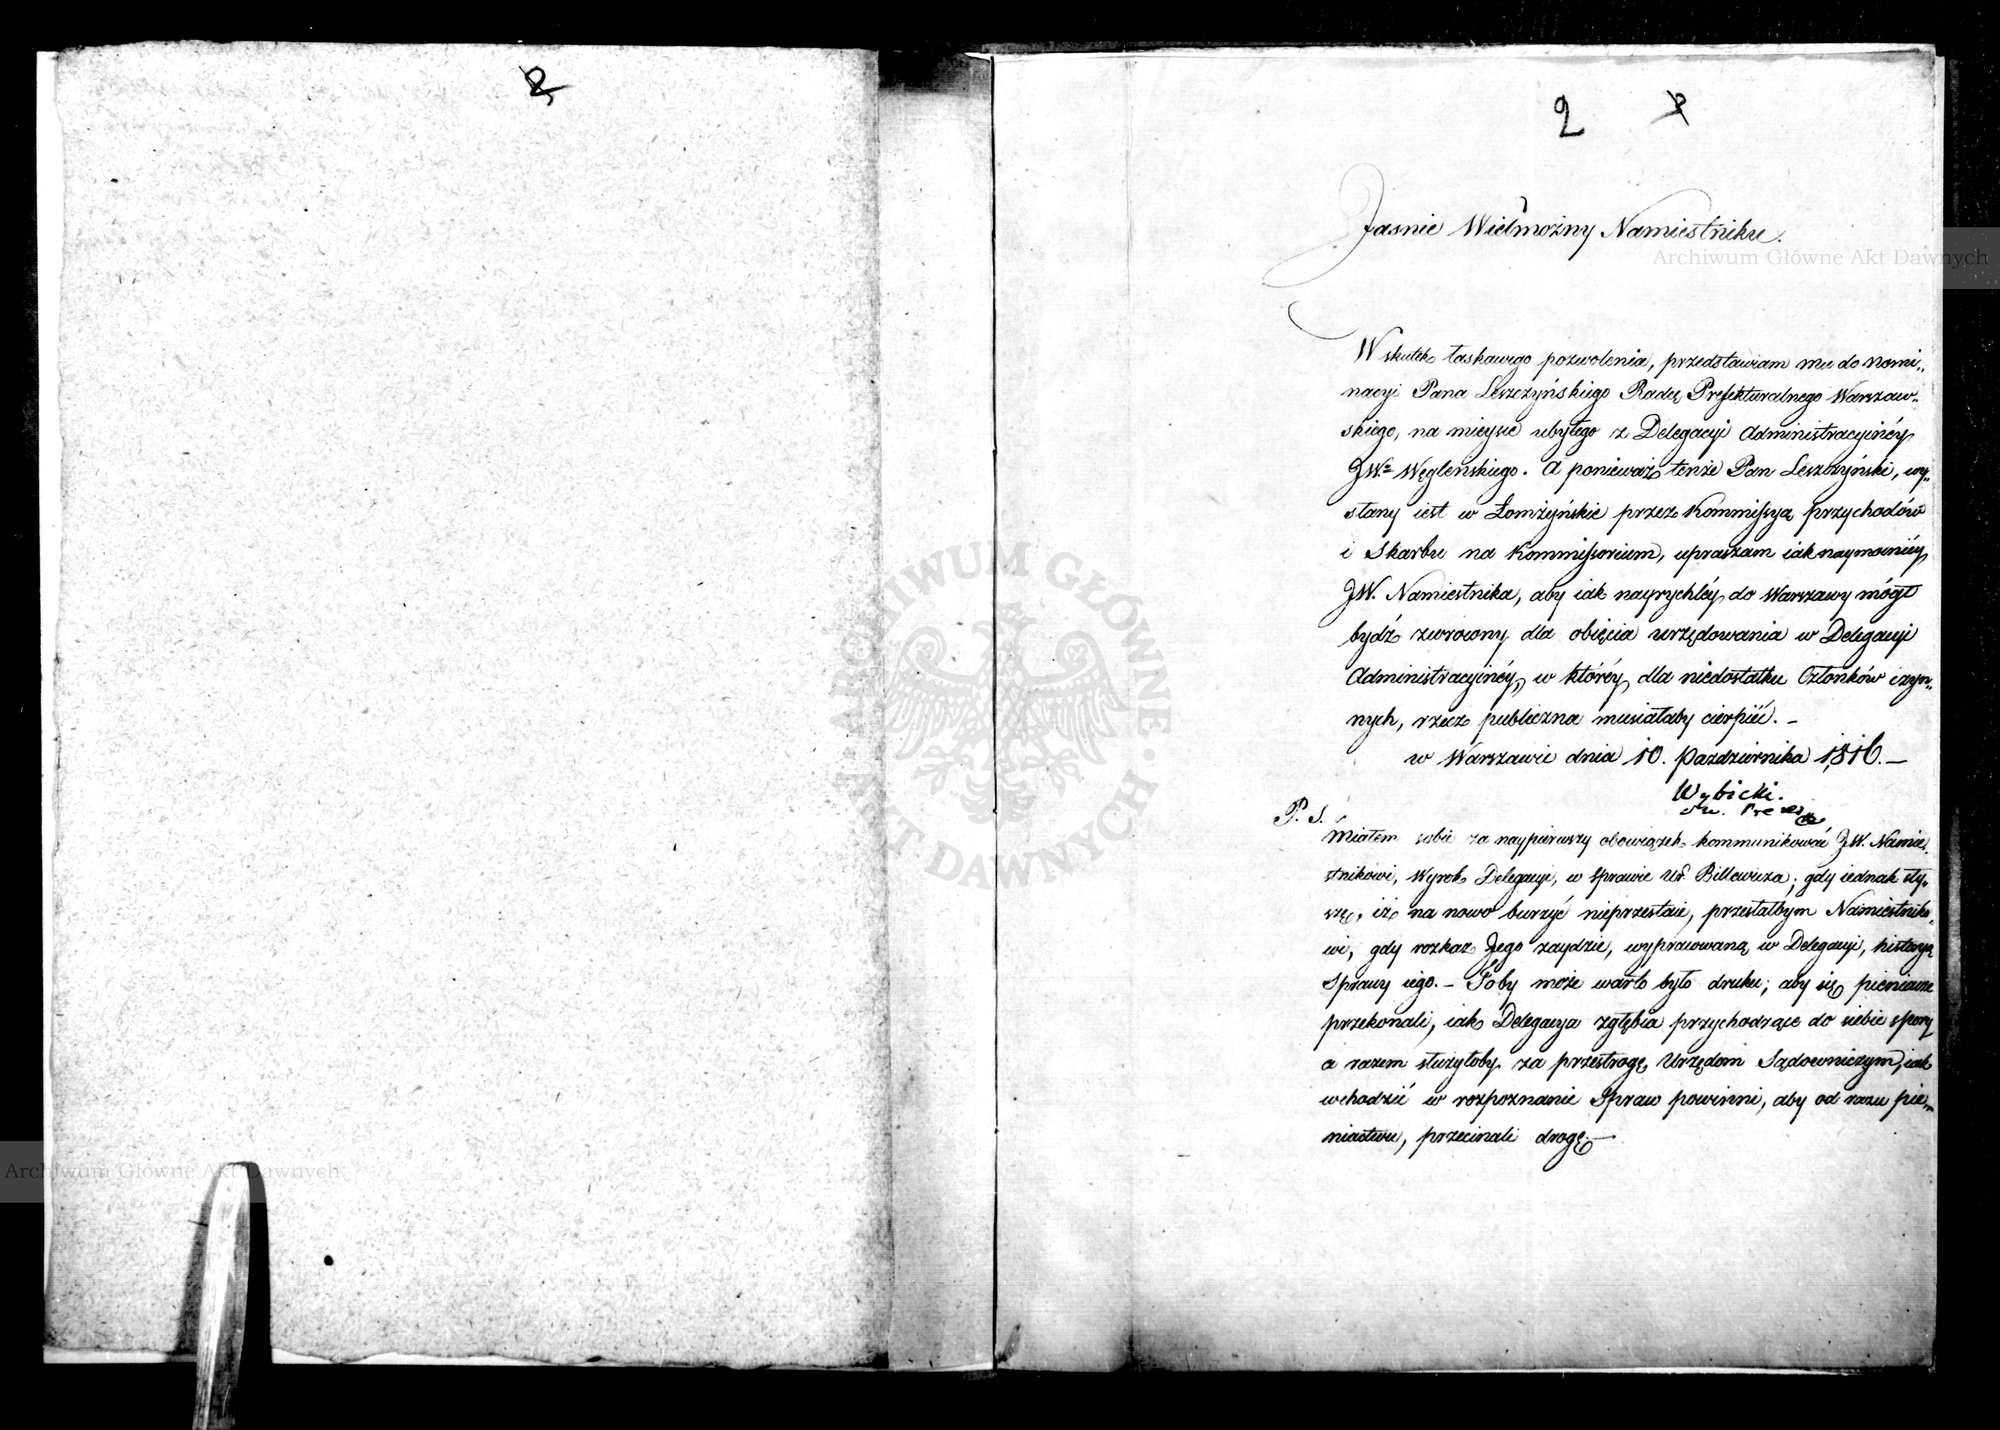 2
2 3
Jasnie Wielmożny Namiestniku.
W skutek łaskawego pozwolenia, przedstawiam mu do nomi„
nacyi Pana Leszczyńskiego Radcę Prefekturalnego Warszaw„
skiego, na mieysce ubyłego z Delegacyi Administracyinéy
JW° Węgleńskiego. A ponieważ tenże Pan Leszczyński, wy„
słany iest w Łomżyńskie przez Kommissyą przychodów
i Skarbu na Kommissorium, upraszam iak naymocniéy
JW. Namiestnika, aby iak nayrychléy do Warszawy mógł
bydź zwrócony dla obięcia urzędowania w Delegacyi
Administracyinéy, w któréy dla niedostatku Członków czyn„
nych, rzecz publiczna musiałaby cierpieć. –
w Warszawie dnia 10. Pazdziernika 1816. –
Wybicki.
P. S.
Miałem sobie za naypierwszy obowiązek kommunikować JW. Namie„
stnikowi, Wyrok Delegacyi, w sprawie Ur. Billewicza; gdy iednak sły„
szę, iż na nowo burzyć nieprzestaie, przesłałbym Namiestniko„
wi, gdy rozkaz Jego zaydzie, wypracowaną w Delegacyi, historyą
Sprawy iego. – Toby może warto było druku; aby się pieniacze
przekonali, iak Delegacya zgłębia przychodzące do siebie spory
a razem służyłoby za przestrogę Urzędom Sądowniczym, iak
wchodzić w rozpoznanie Spraw powinni, aby od razu pie„
niactwu, przecinali drogę. –
Archiwum Główne Akt Dawnych
Archiwum Główne Akt Dawnych
ARCHIWUM GŁÓWNE · AKT DAWNYCH ·